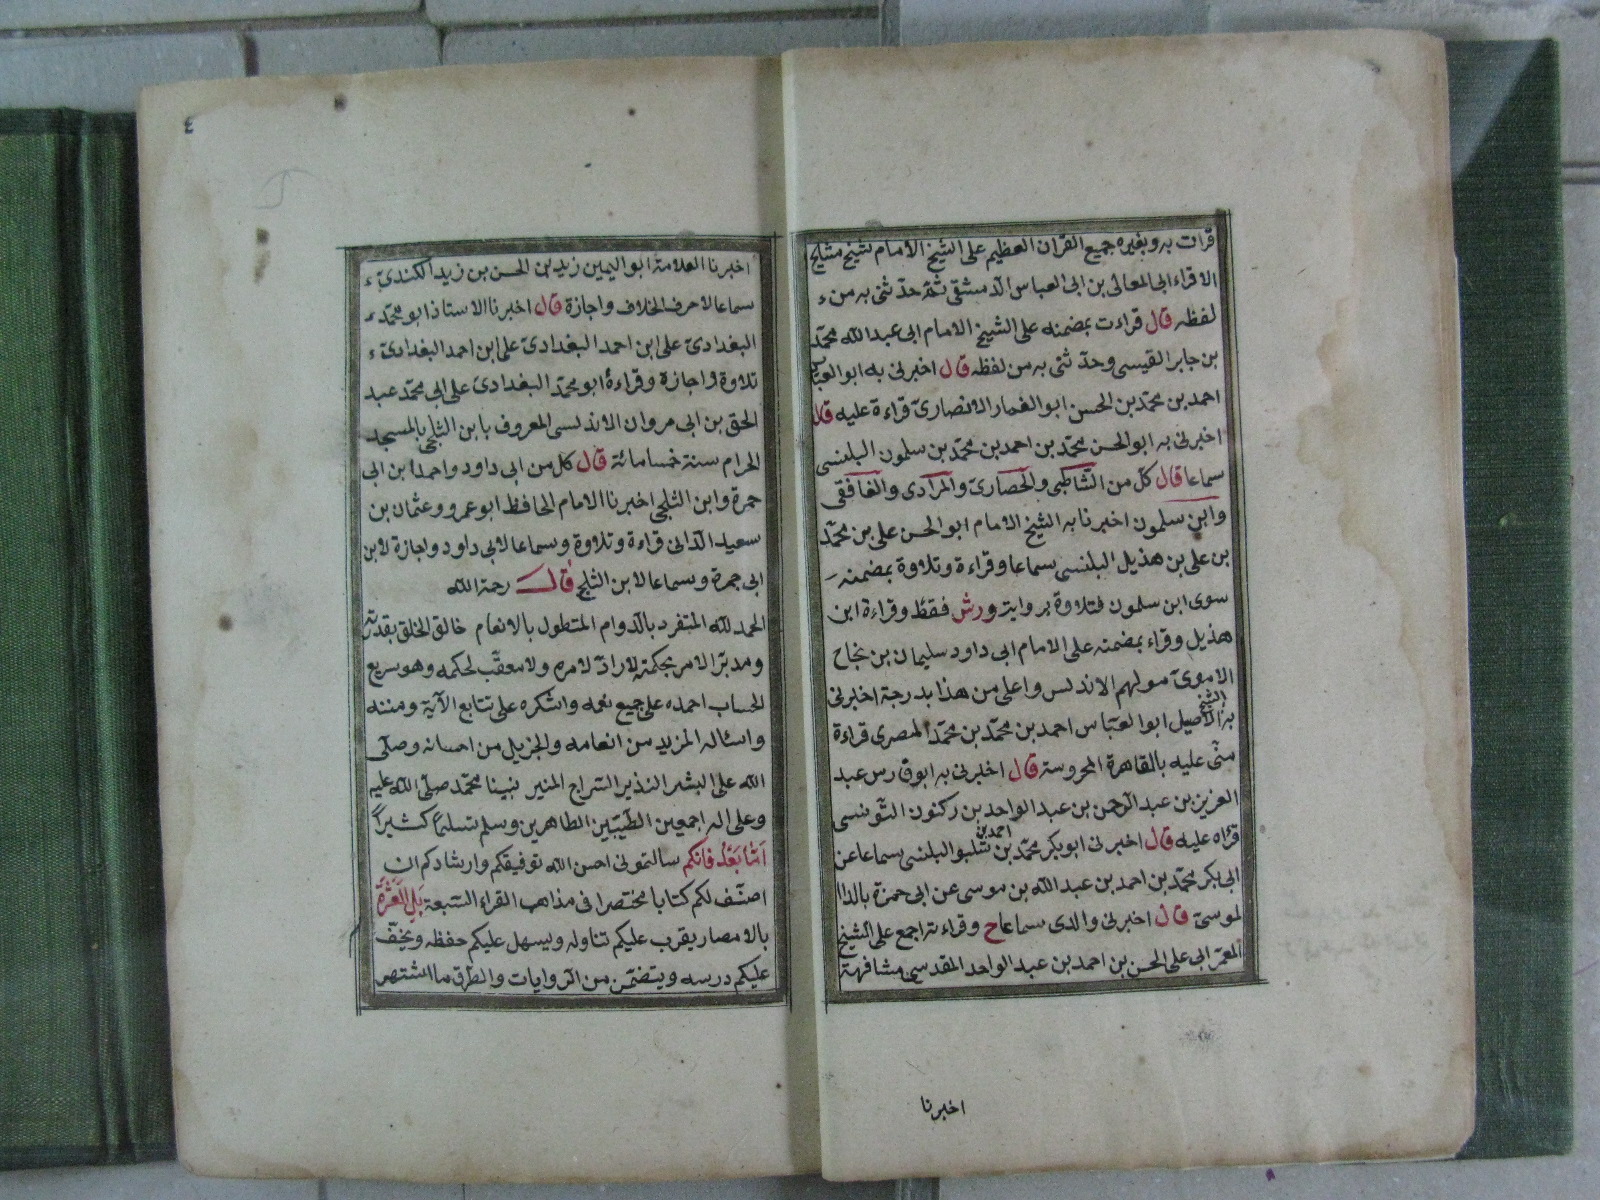 قرات به وبغيره جميع القران العظيم على الشيخ الامام شيخ مشايخ
الاقراء ابى المعالى بن ابى العباس الدمشقى ثقة حدثنى به من
لفظه قال قراءت بمضمنه على الشيخ الامام ابى عبد الله محمد
بن جابر القيسى وحدثنى به من لفظه قال اخبرنى به ابو العباس
احمد بن محمد بن الحسن ابو الغماز الانصارى قراءة عليه قال
اخبرنى به ابو الحسن محمد بن احمد بن محمد بن سلمون البلنسى
سماعا قال كل من الشاطبى والحصارى والمرادى والغافقى
وابن سلمون اخبرنا به الشيخ الامام ابو الحسن على بن محمد
بن على بن هذيل البلنسى سماعا وقراءة وتلاوة بمضمنه
سوى ابن سلمون فتلاوة برواية ورش فقط وقراءة ابن
هذيل وقراء بمضمنه على الامام ابى داود سليمان بن نجاح
الاموى مولهم الاندلس واعلى من هذا بدرجة اخبرنى
به الشيخ الاصيل ابو العباس احمد بن محمد بن محمد المصرى قراءة
منى عليه بالقاهرة المحروسة قال اخبرنى به ابو فارس عبد
العزيز بن عبد الرحمن بن عبد الواحد بن ركنون التونسى
قراه عليه قال اخبرنى ابو بكر محمد بن احمد بن شلبو البلنسى سماعا عن
ابى بكر محمد بن احمد بن عبد الله بن موسى عن ابى حمزة بالذا
لموسى قال اخبرنى والدى سماعا ح وقراءته اجمع على الشيخ
المعمر ابى على الحسن بن احمد بن عبد الواحد المقدسى مشافهة
اخبرنا
٤
اخبرنا العلامة ابو اليمين زيد بن الحسن بن زيد الكندى
سماعا لاحرف الخلاف واجازة قال اخبرنا الاستاذ ابو محمد
البغدادى على ابن احمد البغدادى على ابن احمد البغدادى
تلاوة واجازة وقراءة ابو محمد البغدادى على ابى محمد عبد
الحق بن ابى مروان الاندلسى المعروف بابن الثلجى بالمسجد
الحرام سنة خمسامائة قال كل من ابى داود واحمد ابن ابى
جمرة وابن الثلجى اخبرنا الامام الحافظ ابو عمرو وعثمان بن
سعيد الدانى قراءة وتلاوة وسماعا لابى داود واجازة لابن
ابى جمرة وسماعا لابن الثلج قال رحمة الله
الحمد لله المتفرد بالدوام المتطول بالانعام خالق الخلق بقدرته
ومدبر الامر بحكمته لاراد لامره ولا معقب لحكمه وهو سريع
الحساب احمده على جميع نعمه واشكره على تتابع الآية ومننه
واسئاله المزيد من انعامه والجزيل من احسانه وصلى
الله على البشر النذير السراج المنير نبينا محمد صلى الله عليه
وعلى اله اجمعين الطيبين الطاهرين وسلم تسليما كثيرا
اما بعد فانكم سالتمونى احسن الله توفيقكم وارشادكم ان
اصنف لكم كتابا مختصرا فى مذاهب القراء السبعة بل العشرة
بالامصار يقرب عليكم تناوله ويسهل عليكم حفظه ويخف
عليكم درسه ويتضمن من الروايات والطرق ما اشتهر